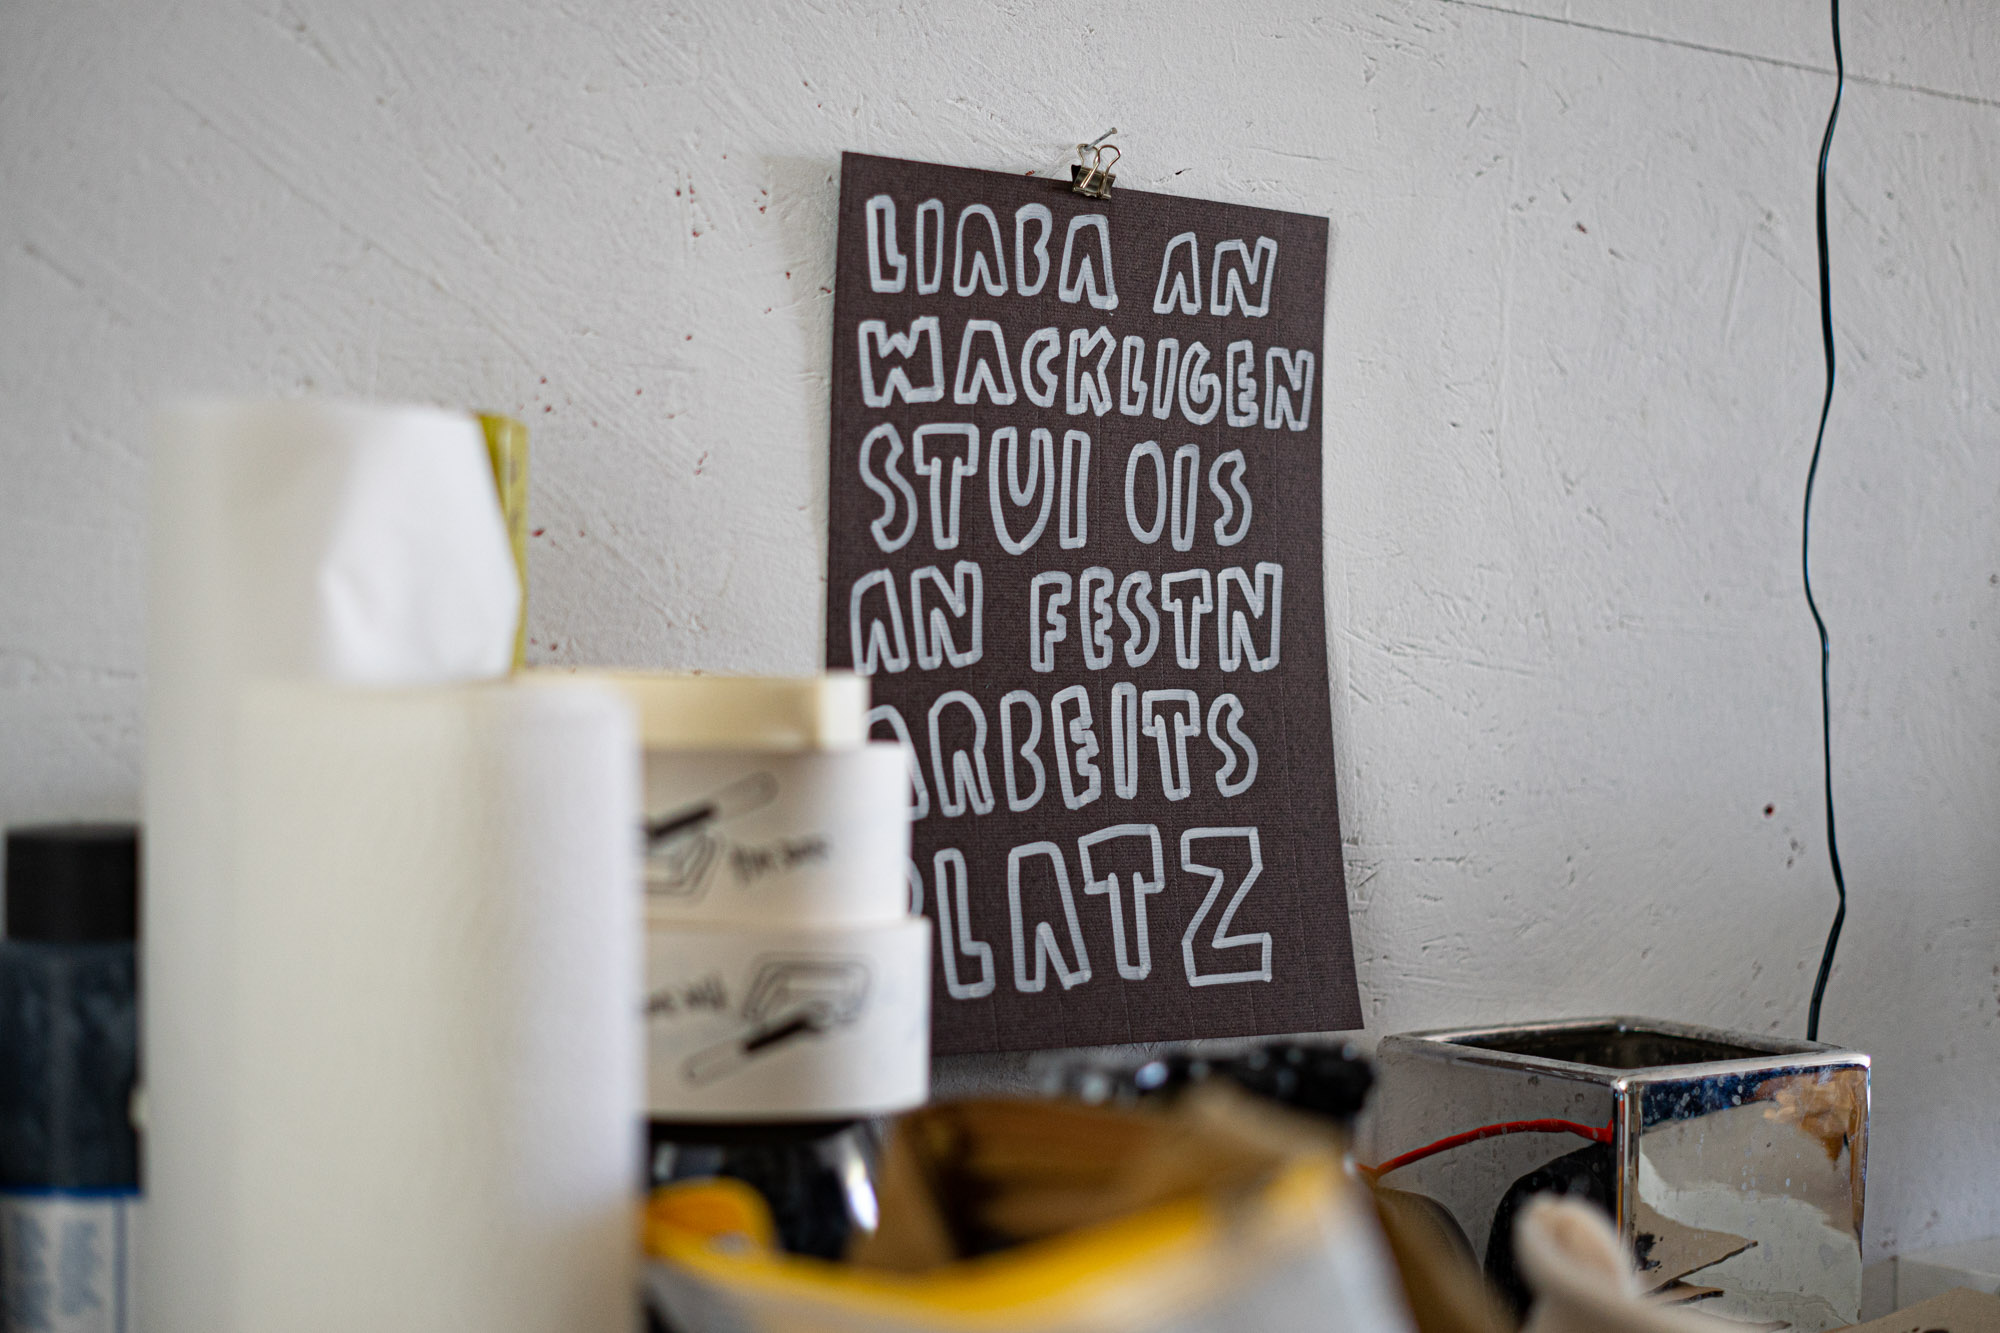 LIABA AN
WACKLIGEN
STUI OIS
AN FESTN
ARBEITS
PLATZ